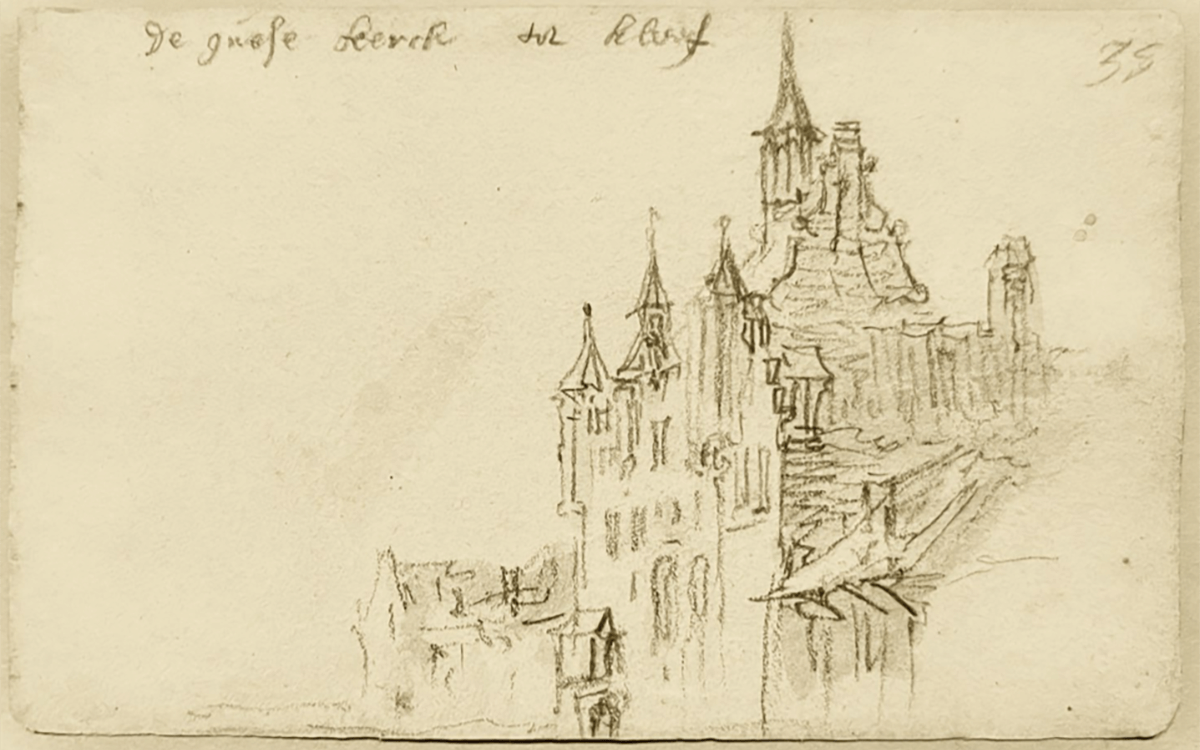 De groſe keerck tot kleef
38